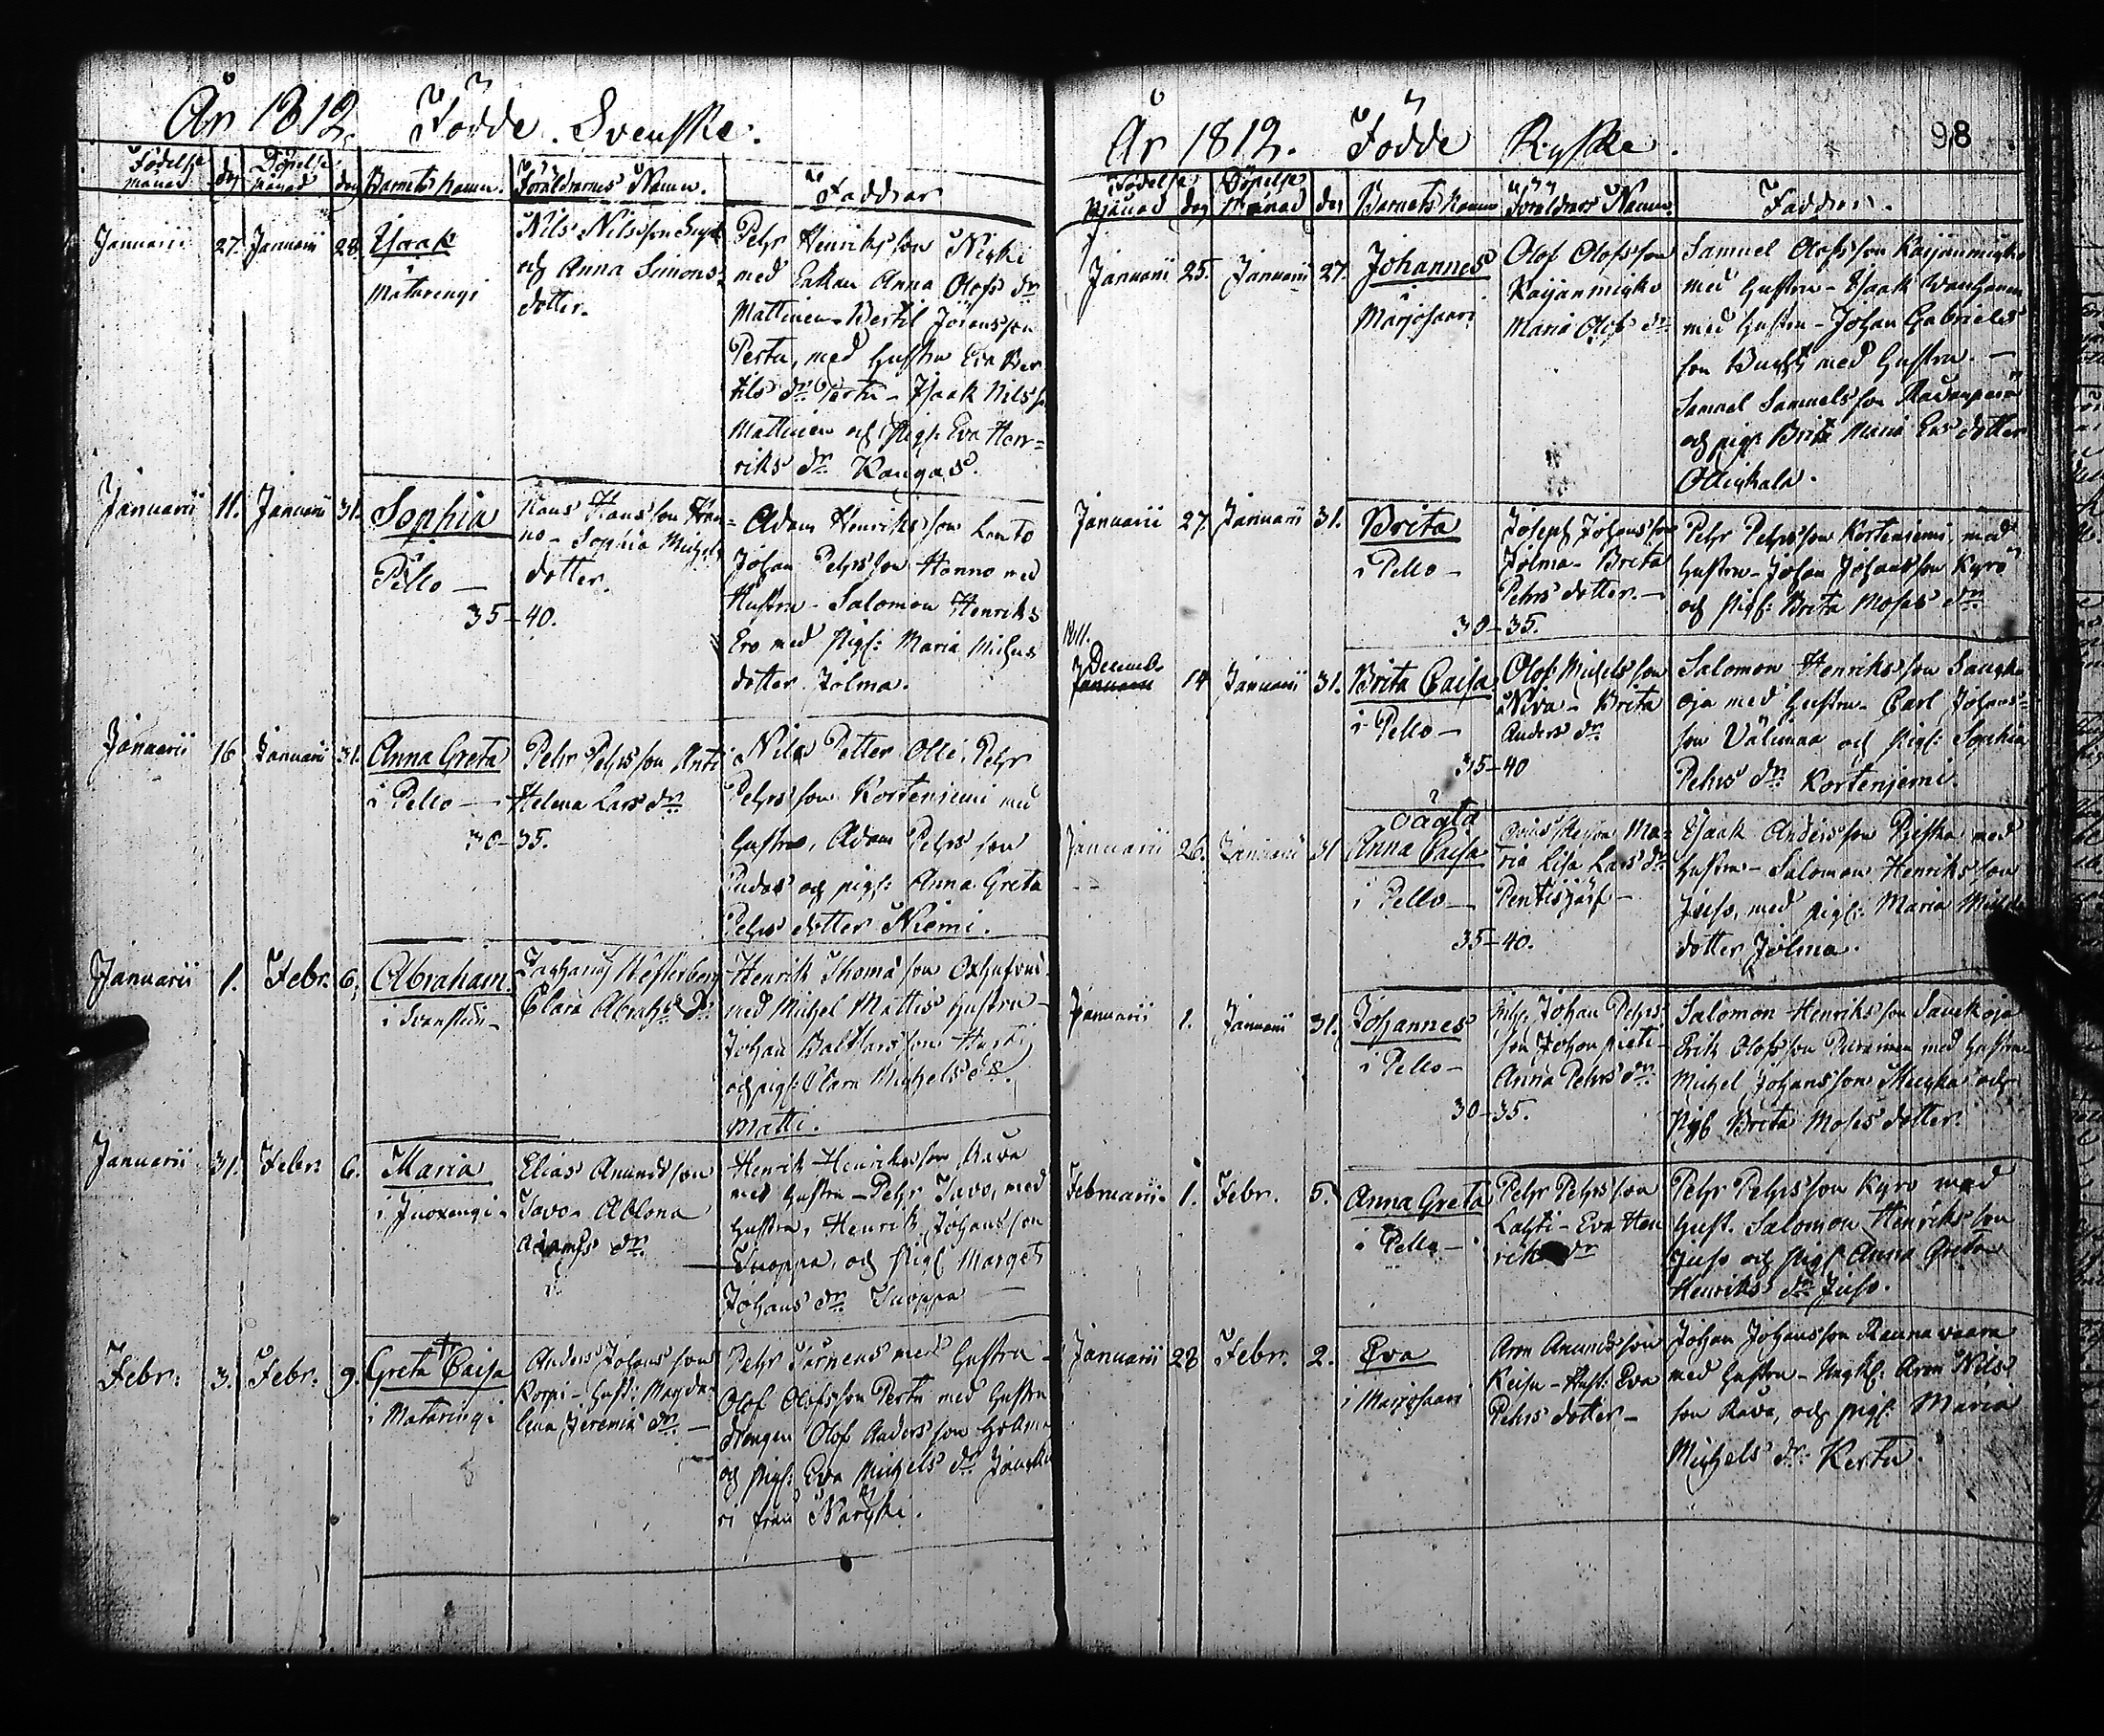 År 1812. Födde. Svenske.
Födelse månad dag Döpelse månad dag Barnets Namn. Föräldrarnes Namn. Faddrar
Januarii 27. Januarii 28. Isaak
i
Matarengi
Nils Nilsson
och Anna Simons
dotter.
Pehr Henriksson Niski
med Enkan Anna Olofs dr
Mattinen Bertil Jöransson
Pertu, med Hustru Eva Ber
tils dr Pertu - Isaak Nilsson
Mattinen och Pig: Eva Hen=
riks dr Kangas.
Januarii 11. Januarii 31. Sophia
Pello —
35-40.
Hans Hansson Han=
no - Sophia Michels
dotter.
Adam Henriksson Lanto
Johan Pehrsson Hanno med
Hustru - Salomon Henriks
Ero med Pig: Maria Michels
dotter Jolma.
Januarii 16 Januarii 31. Anna Greta
i Pello —
30-35.
Pehr Pehrsson Anti
Helena Lars dr
Nils Petter Olli, Pehr
Pehrsson Korteniemi med
Hustru, Adam Pehrsson
Pudas och pig: Anna Greta
Pehrs dotter Niemi.
Januarii 1. Febr. 6. Abraham.
i Svanstein -
Zacharij Westerberg
Clara Abrah: Dr
Henrik Thomasson Oxhufvud
med Michel Mattis Hustru -
Johan Balthasson
och pig: Clara Michels dr
Matti.
Januarii 31. Febr: 6. Maria
i Juoxengi -
Elias Anundsson
Tavo - Ablona
Adams dr
Henrik Henriksson Rava
med Hustru - Pehr Tavo, med
Hustru, Henrik Johansson
Tuoppa, och Pig: Marget
Johans dr Tuoppa —
Febr: 3. Febr. 9. Greta Caisa
i Mataringi
Anders Johansson
Korpi - Hust: Magda=
lena Jeremiæ dr —
Pehr Törnens med Hustru -
Olof Olofsson Pertu med Hustru
drängen Olof Andersson
och Pig: Eva Michels dr
i från Närki.
98
År 1812. Födde Ryske.
Födelse Månad dag Döpelse Månad dag Barnets Namn Föräldrars Namn. Faddrar.
Januarii 25. Januarii 27. Johannes
i
Marjosaari
Olof Olofsson
Kaijanmisko
Maria Olofs dr
Samuel Olofsson Kaijanmisko
med Hustru - Isaak Wanhanen
med Hustru - Johan Gabriels
son Bucht med Hustru. —
Samuel Samuelsson
och pig: Brita Maria Ers dotter
Januarii 27. Januarii 31. Brita
i Pello -
30-35.
Joseph Johansson
Jolma - Brita
Pehrs dotter. -
Pehr Pehrsson Kortenieemi, med
Hustru - Johan Johansson Kyrö
och Pig: Brita Moses dr
1811.
Decemb. 14 Januarii 31. Brita Caisa
i Pello -
35-40
Olof Michelsson
Niva - Brita
Anders dr
Salomon Henriksson Sauko
oja med Hustru - Carl Johans=
son Välimaa och Pig: Sophia
Pehrs dr Kortenjemi.
Januarii 26. Januarii 31 oächta
Anna Caisa
i Pello -
35-40.
Ma=
ria Lisa Lars dr
Pentisjärf -
Isaak Andersson med
Hustru - Salomon Henriksson
Juso, med pig: Maria Michels
dotter Jolma.
Januarii 1. Januarii 31. Johannes
i Pello -
30-35.
Johan Pehrs
son Johanpieti -
Anna Pehrs dr
Salomon Henriksson Saukoja
Erik Olofsson Puranen med Hustru
Michel Johansson och
Pig: Brita Moses dotter.
Februarii. 1. Febr. 5. Anna Greta
i Pello -
Pehr Pehrsson
Lahti - Eva Hen
riks dr
Pehr Pehrsson Kyrö med
Hust. Salomon Henriksson
Juso och Pig: Anna Greta
Henriks dr Juso.
Januarii 28 Febr. 2. Eva
i Marjosaari
Aron Anundsson
Keisu - Hust: Eva
Pehrs dotter -
Johan Johansson Raunawaara
med Hustru - Ungk: Aron Nils
son Rava, och pig: Maria
Michels dr: Kertu.